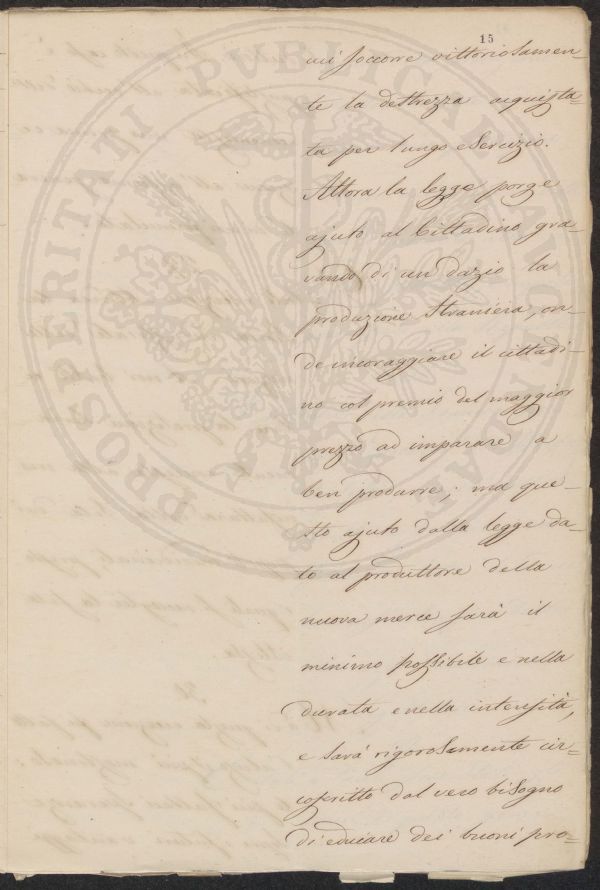 15
cui soccorre vittoriosamen-
te la destrezza acquista-
ta per lungo esercizio.
Allora la legge porge
ajuto al Cittadino gra-
vando di un dazio la
produzione straniera, on-
de incoraggiare il cittadi-
no col premio del maggior
prezzo ad imparare a
ben produrre; ma que-
sto ajuto dalla legge da-
to al produttore della
nuova merce sarà il
minimo possibile e nella
durata e nella intensità,
e sarà rigorosamente cir-
coscritto dal vero bisogno
di educare dei buoni pro-
PROSPERITATI PVBLICAE AVGENDAE